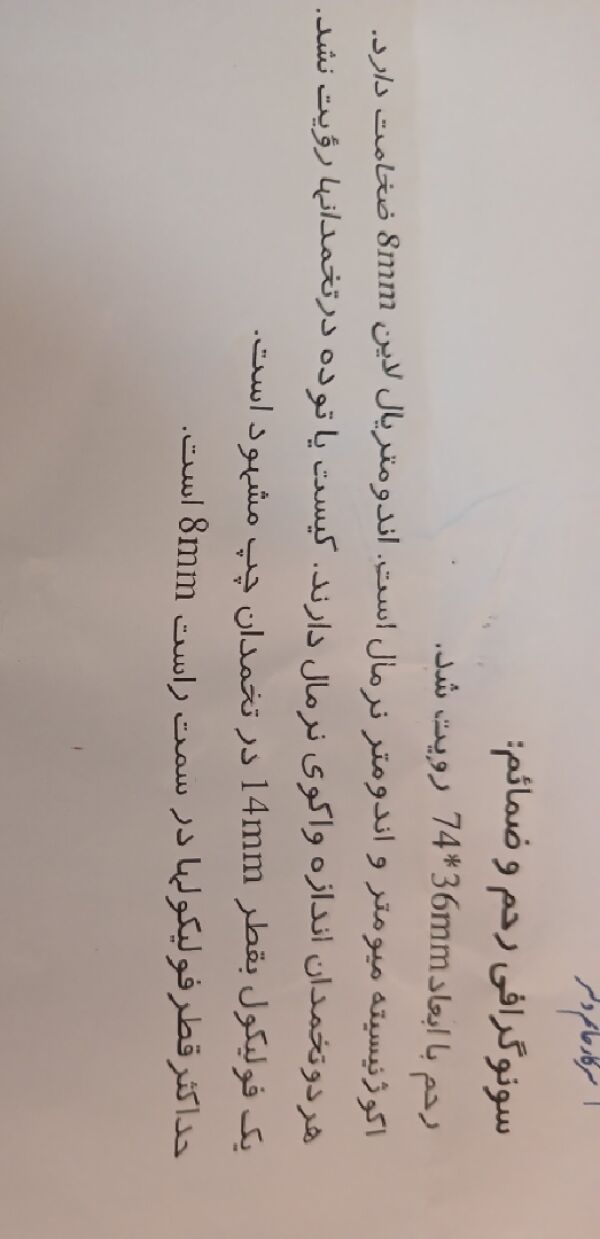 سونوگرافی رحم و ضمائم:
رحم با ابعاد 74*36mm رویت شد.
اکوژنیسیته میومتر و اندومتر نرمال است. اندومتریال لاین 8mm ضخامت دارد.
هر دو تخمدان اندازه واکوی نرمال دارند. کیست یا توده در تخمدانها رؤیت نشد.
یک فولیکول بقطر 14mm در تخمدان چپ مشهود است.
حداکثر قطر فولیکولها در سمت راست 8mm است.